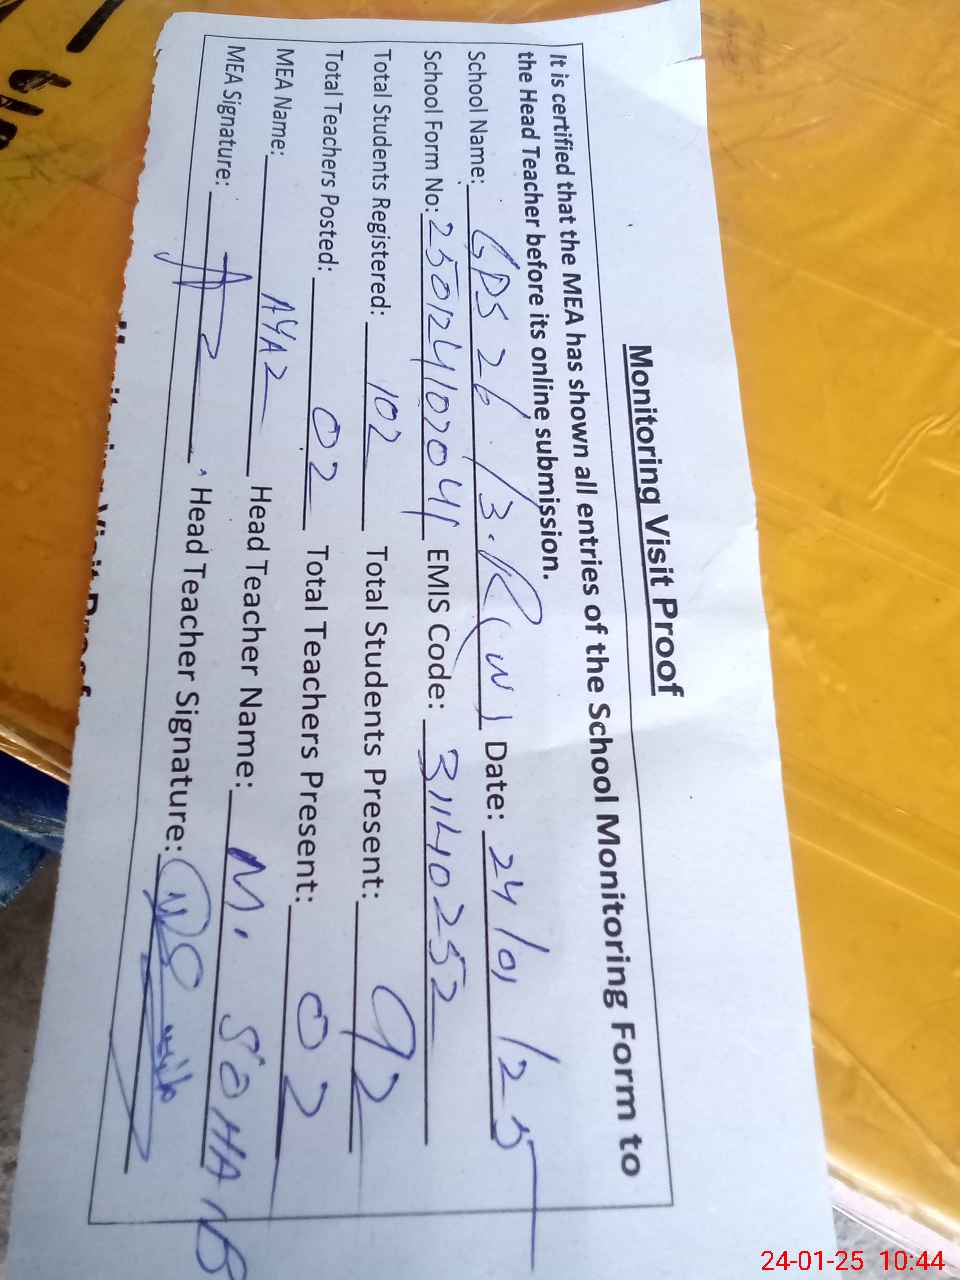 Monitoring Visit Proof
It is certified that the MEA has shown all entries of the School Monitoring Form to
the Head Teacher before its online submission.
School Name: GPS 26/3.R (W) Date: 24/01/25
School Form No: EMIS Code: 31140252
Total Students Registered: 102 Total Students Present: 92
Total Teachers Posted: 02 Total Teachers Present: 02
MEA Name: AYAZ Head Teacher Name: M. SOHAIB
MEA Signature: Head Teacher Signature:
24-01-25 10:44